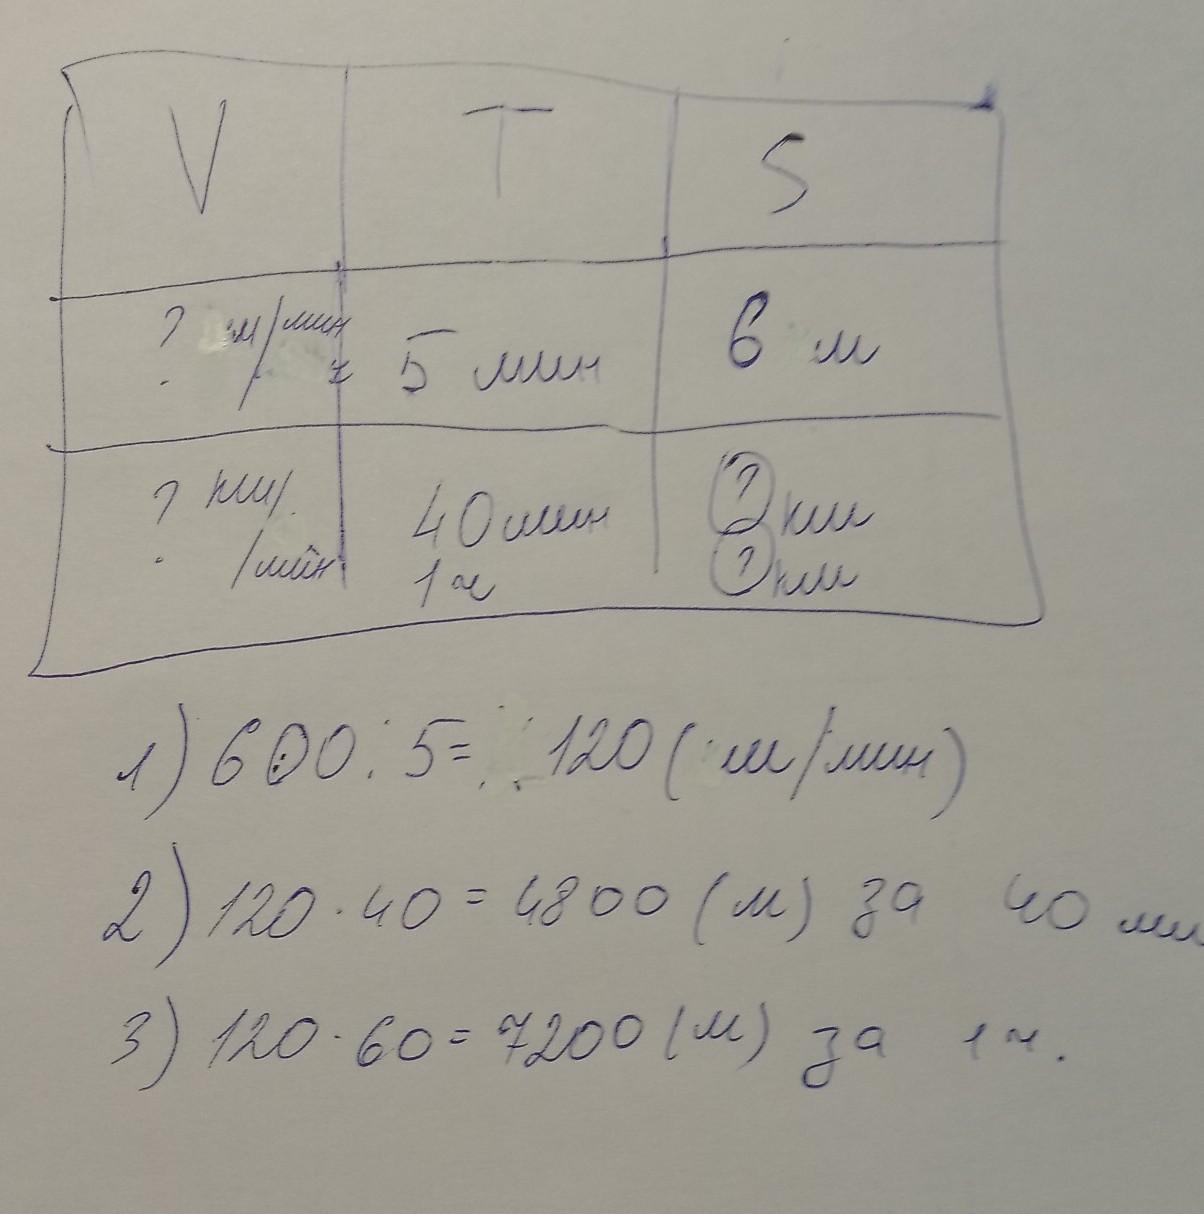 V T S
? м/мин 5 мин 6 м
? км/мин 40 мин ? км
1 ч ? км
1) 600 : 5 = 120 (м/мин)
2) 120 · 40 = 4800 (м) за 40 ми
3) 120 · 60 = 7200 (м) за 1 ч.